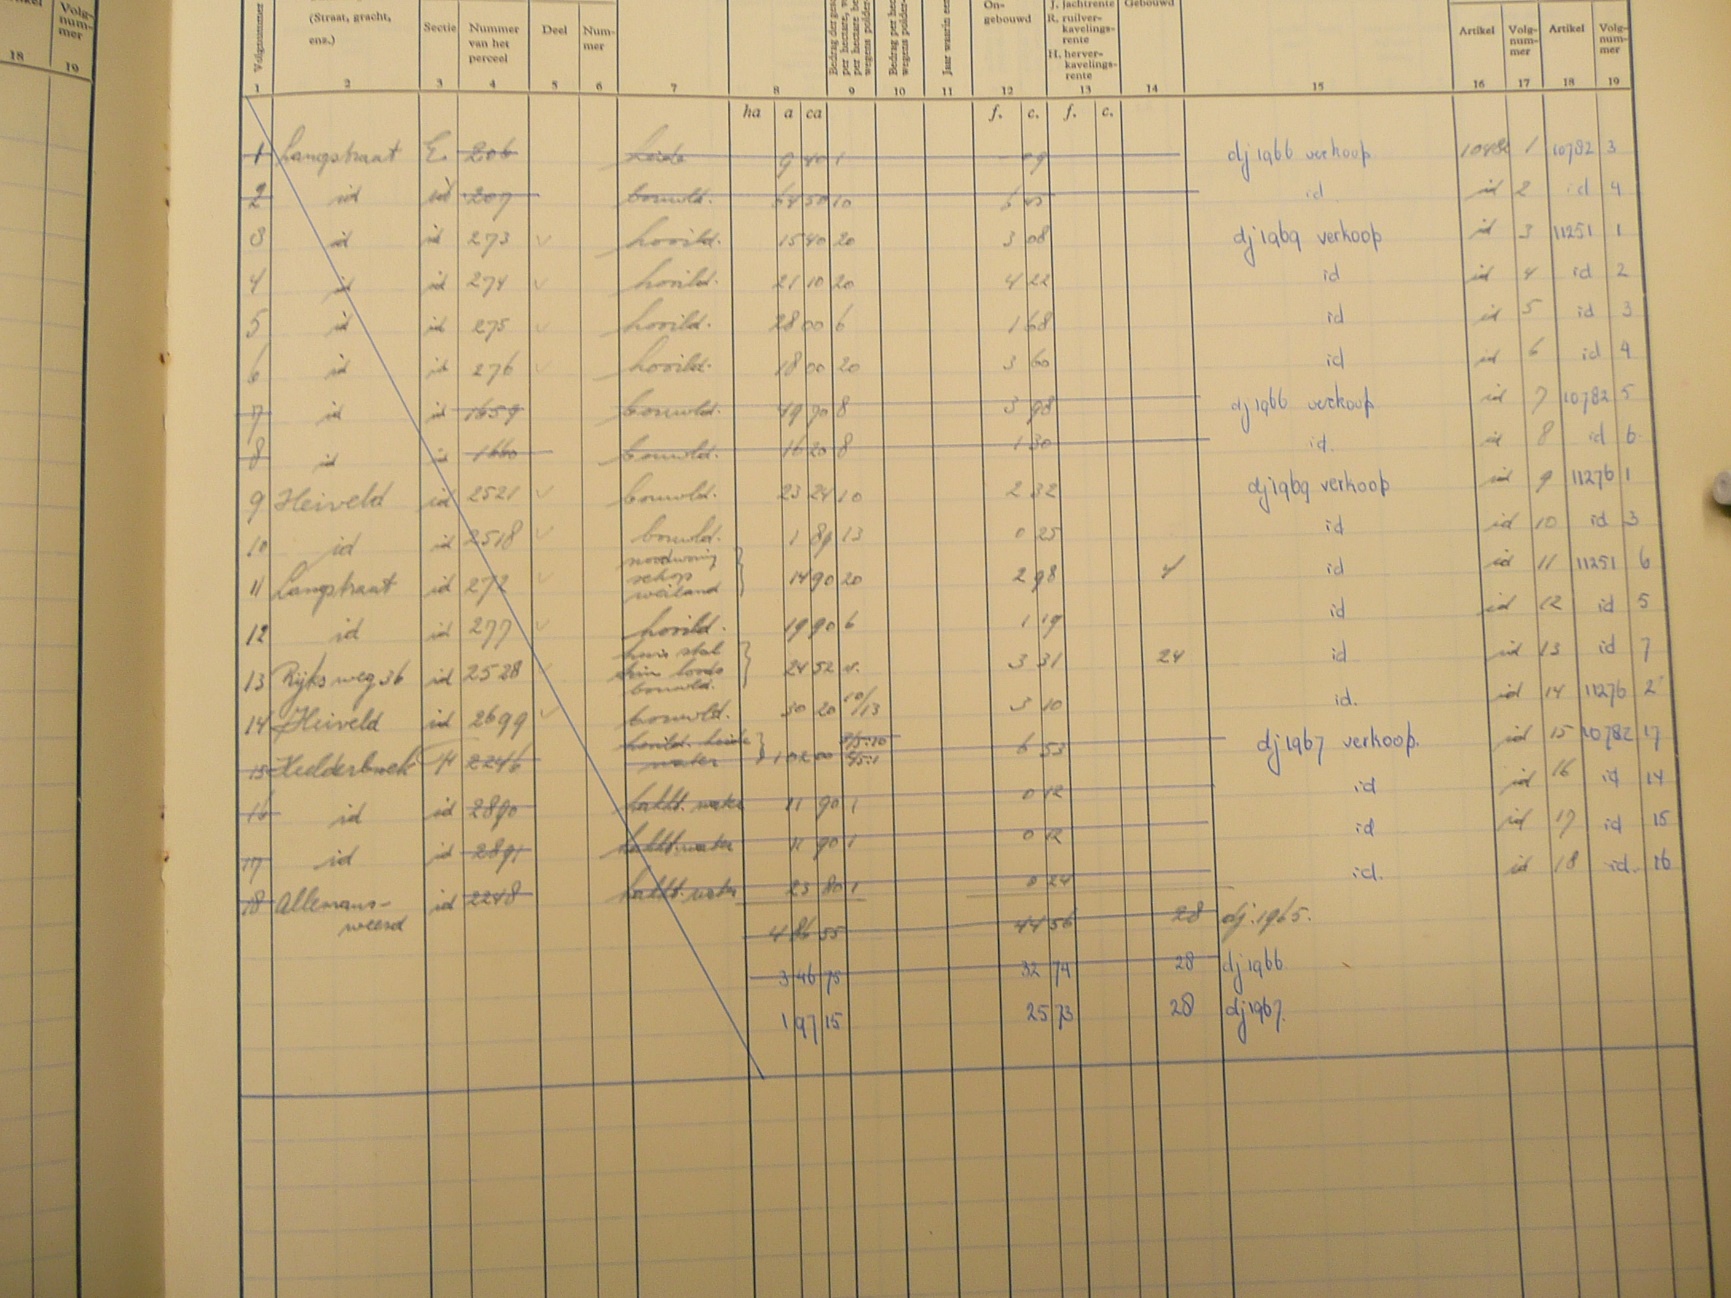 18 Volg-nummer 19
Volgnummer (Straat, gracht, enz.) Sectie Nummer van het perceel Deel Nummer Jaar waarin Ongebouwd J. jachtrente R. ruilverkavelingsrente H. herverkavelingsrente Gebouwd Artikel Volgnummer Artikel Volgnummer
1 2 3 4 5 6 7 8 9 10 11 12 13 14 15 16 17 18 19
ha a ca f. c. f. c.
1 Langstraat E. 206 heide 9 40 1 09 dj 1966 verkoop 1 10782 3
2 id id 207 bouwld. 64 50 10 6 45 id id 2 id 4
3 id id 273 v hooild. 15 40 20 3 08 dj 1969 verkoop id 3 11251 1
4 id id 274 v hooild. 21 10 20 4 22 id id 4 id 2
5 id id 275 v hooild. 28 00 6 1 68 id id 5 id 3
6 id id 276 v hooild. 18 00 20 3 60 id id 6 id 4
7 id id 1659 bouwld. 49 70 8 3 98 dj 1966 verkoop id 7 10782 5
8 id id 1660 bouwld. 16 20 8 1 30 id. id 8 id 6
9 Heiveld id 2521 v bouwld. 23 24 10 2 32 dj 1969 verkoop id 9 11276 1
10 id id 2518 v bouwld. 1 89 13 0 25 id id 10 id 3
11 Langstraat id 272 v noodwoning schop weiland } 14 90 20 2 98 4 id id 11 11251 6
12 id id 277 v hooild. 19 90 6 1 19 id id 12 id 5
13 Rijksweg 36 id 2528 v huis stal loods bouwld. } 24 52 v. 3 31 24 id id 13 id 7
14 Heiveld id 2699 v bouwld. 30 20 10/13 3 10 id. id 14 11276 2
15 H 2246 hooild. heide water } 1 02 00 6 53 dj 1967 verkoop. id 15 10782 17
16 id id 2890 hakht. water 11 90 1 0 12 id id 16 id 14
17 id id 2891 hakht. water 11 90 1 0 12 id id 17 id 15
18 Allemans- id 2248 hakht. water 23 80 1 0 24 id. id 18 id. 16
weerd
4 86 55 44 56 28 dj. 1965.
3 46 75 32 74 28 dj 1966
1 97 15 25 73 28 dj 1967.